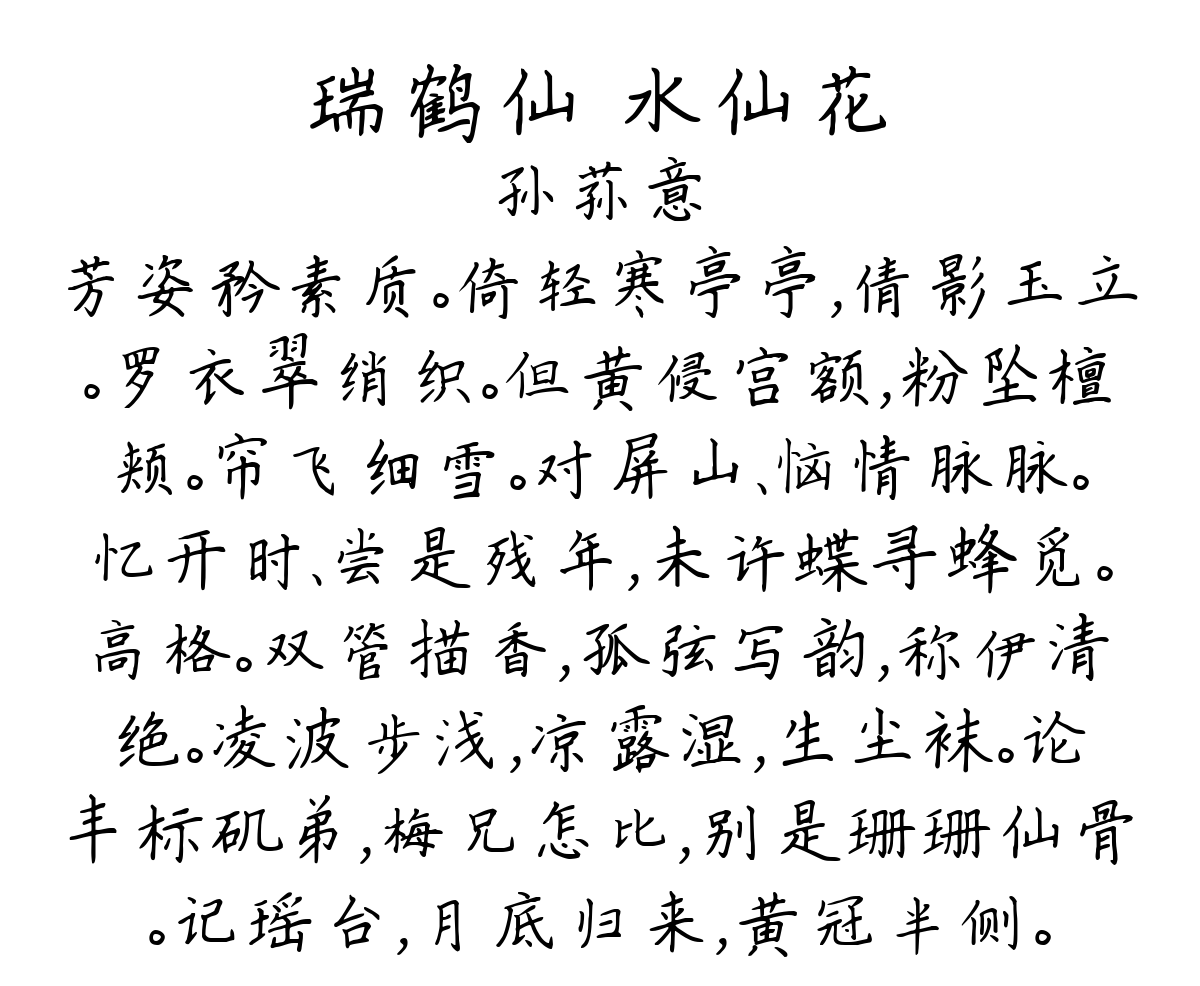 瑞鹤仙 水仙花
孙荪意
芳姿矜素质。倚轻寒亭亭,倩影玉立
。罗衣翠绡织。但黄侵宫额,粉坠檀
颊。帘飞细雪。对屏山、恼情脉脉。
忆开时、尝是残年,未许蝶寻蜂觅。
高格。双管描香,孤弦写韵,称伊清
绝。凌波步浅,凉露湿,生尘袜。论
丰标矶弟,梅兄怎比,别是珊珊仙骨
。记瑶台,月底归来,黄冠半侧。